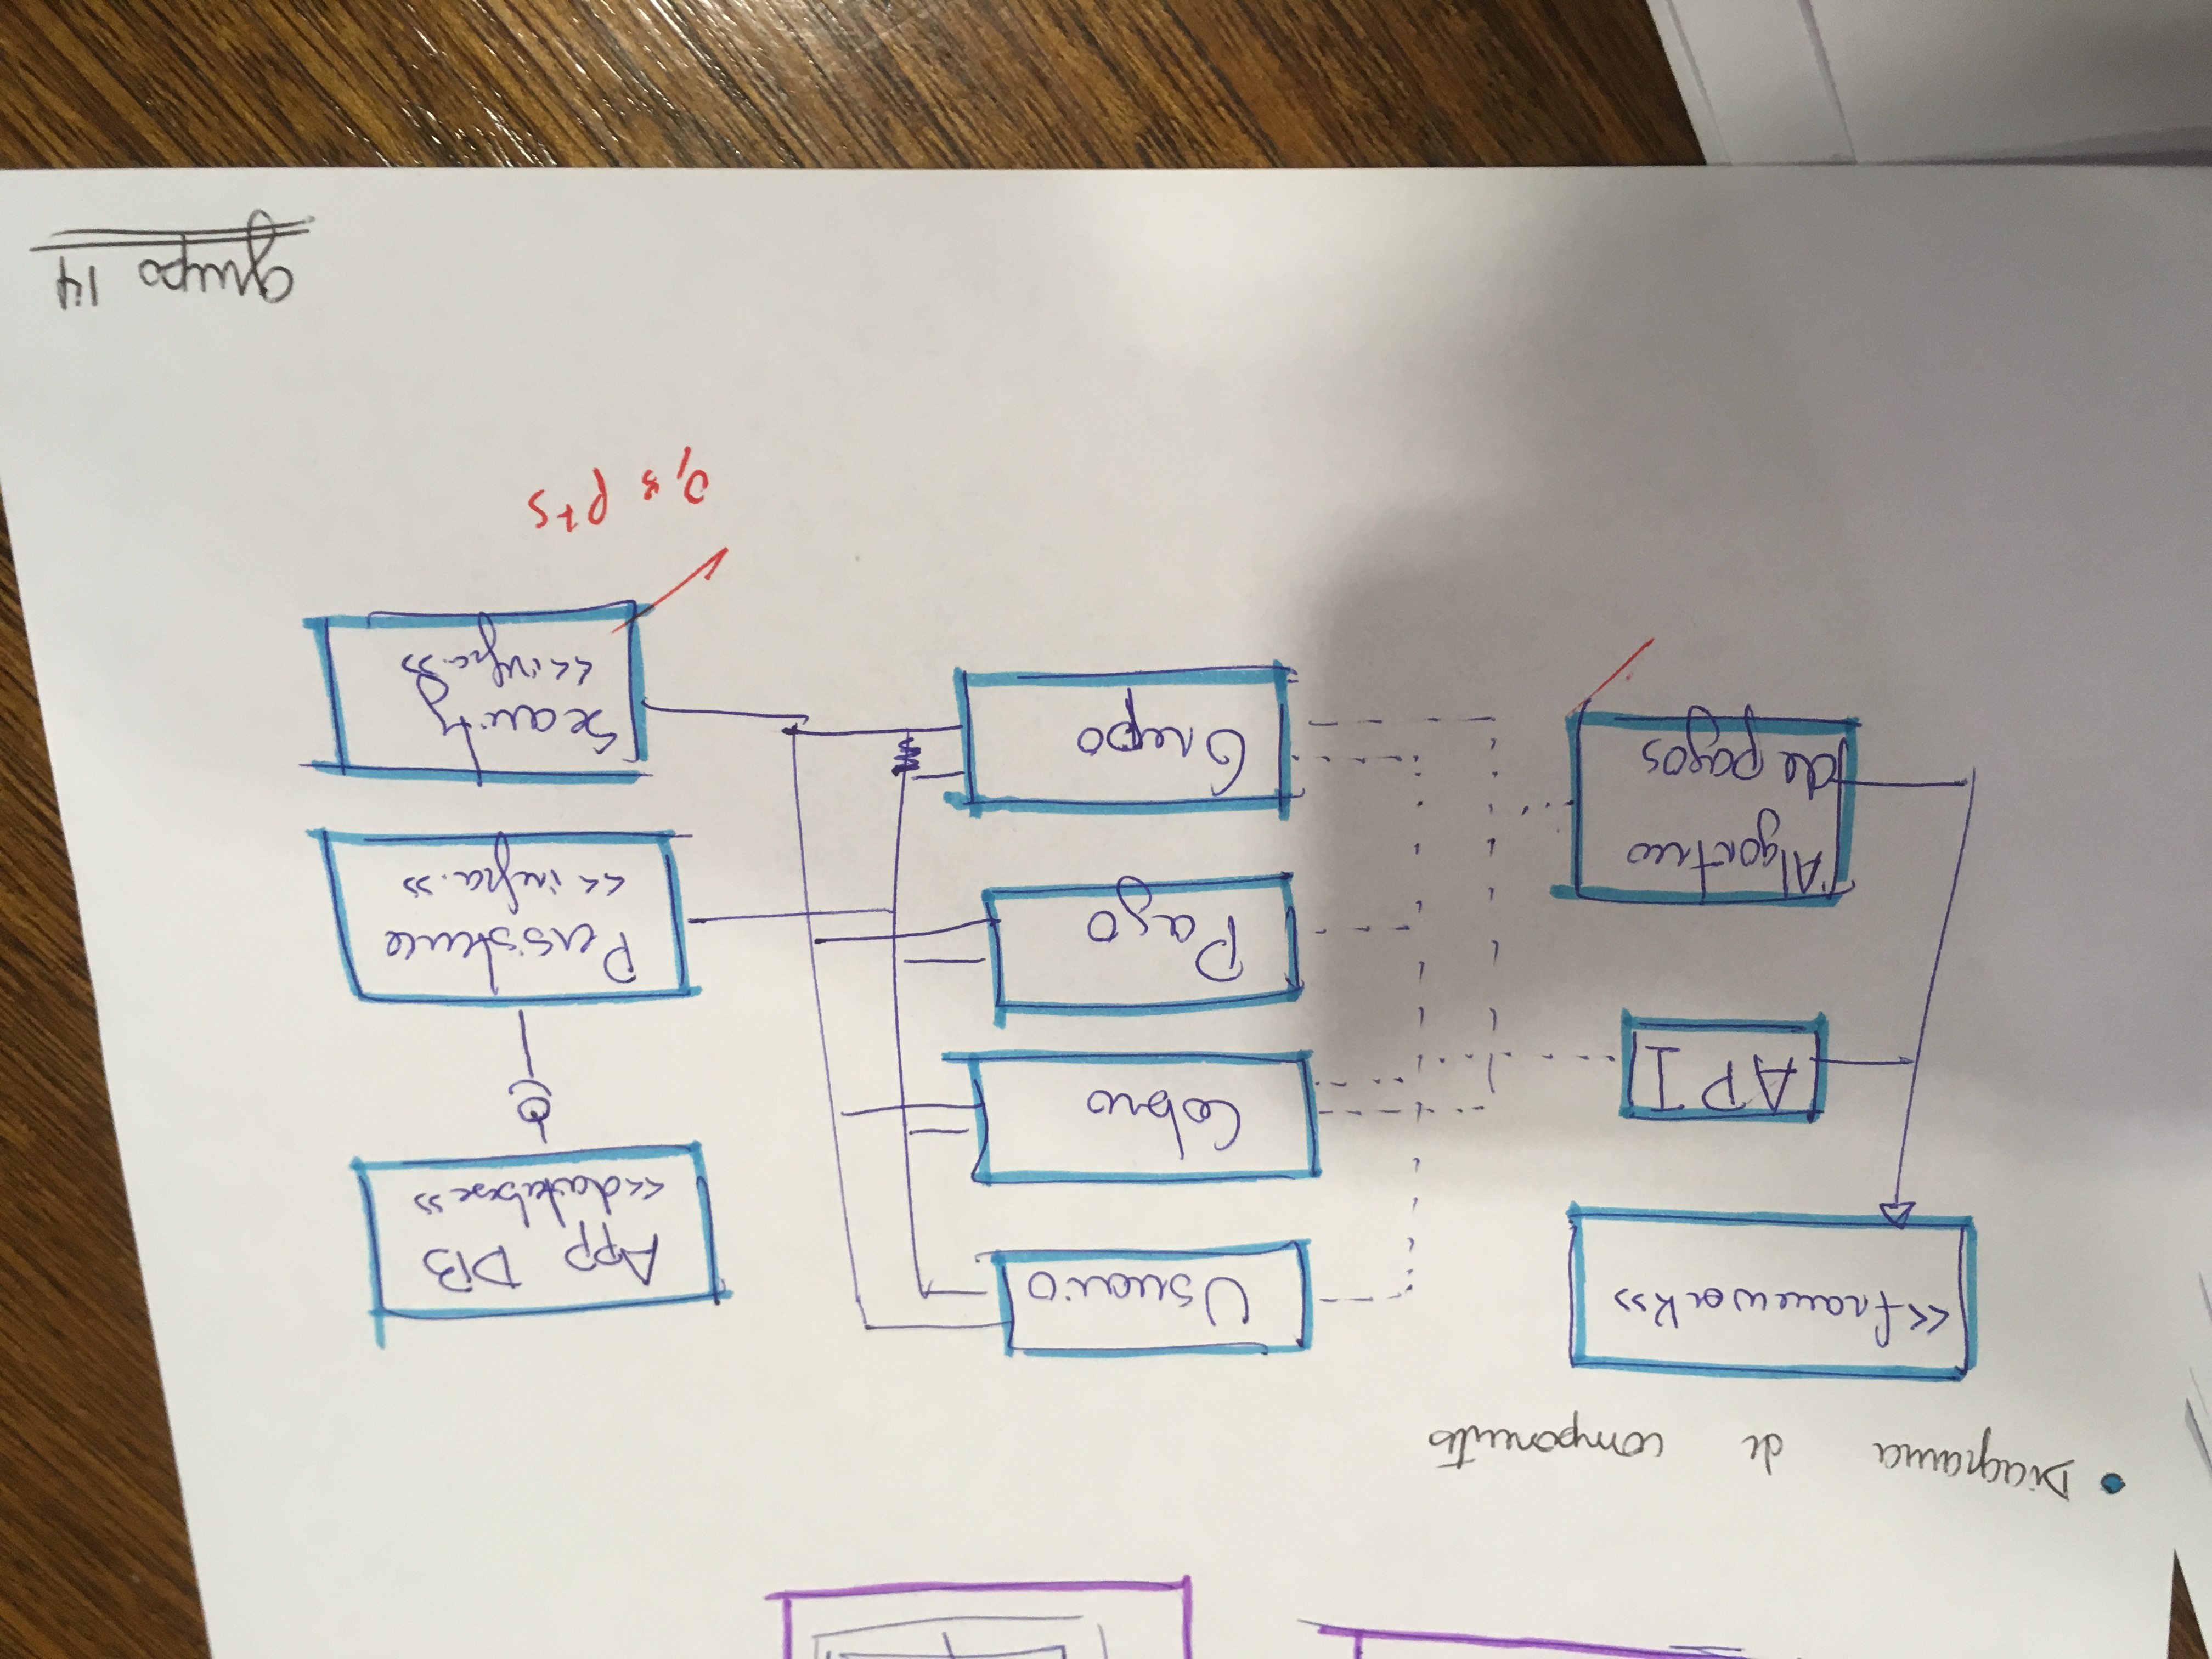 • Diagrama de componentes
<<framework>>
API
Algoritmo
de pagos
Usuario
Cobro
Pago
Grupo
APP DB
<<database>>
Persistence
<<infra.>>
Security
<<infra.>>
pts
grupo 14